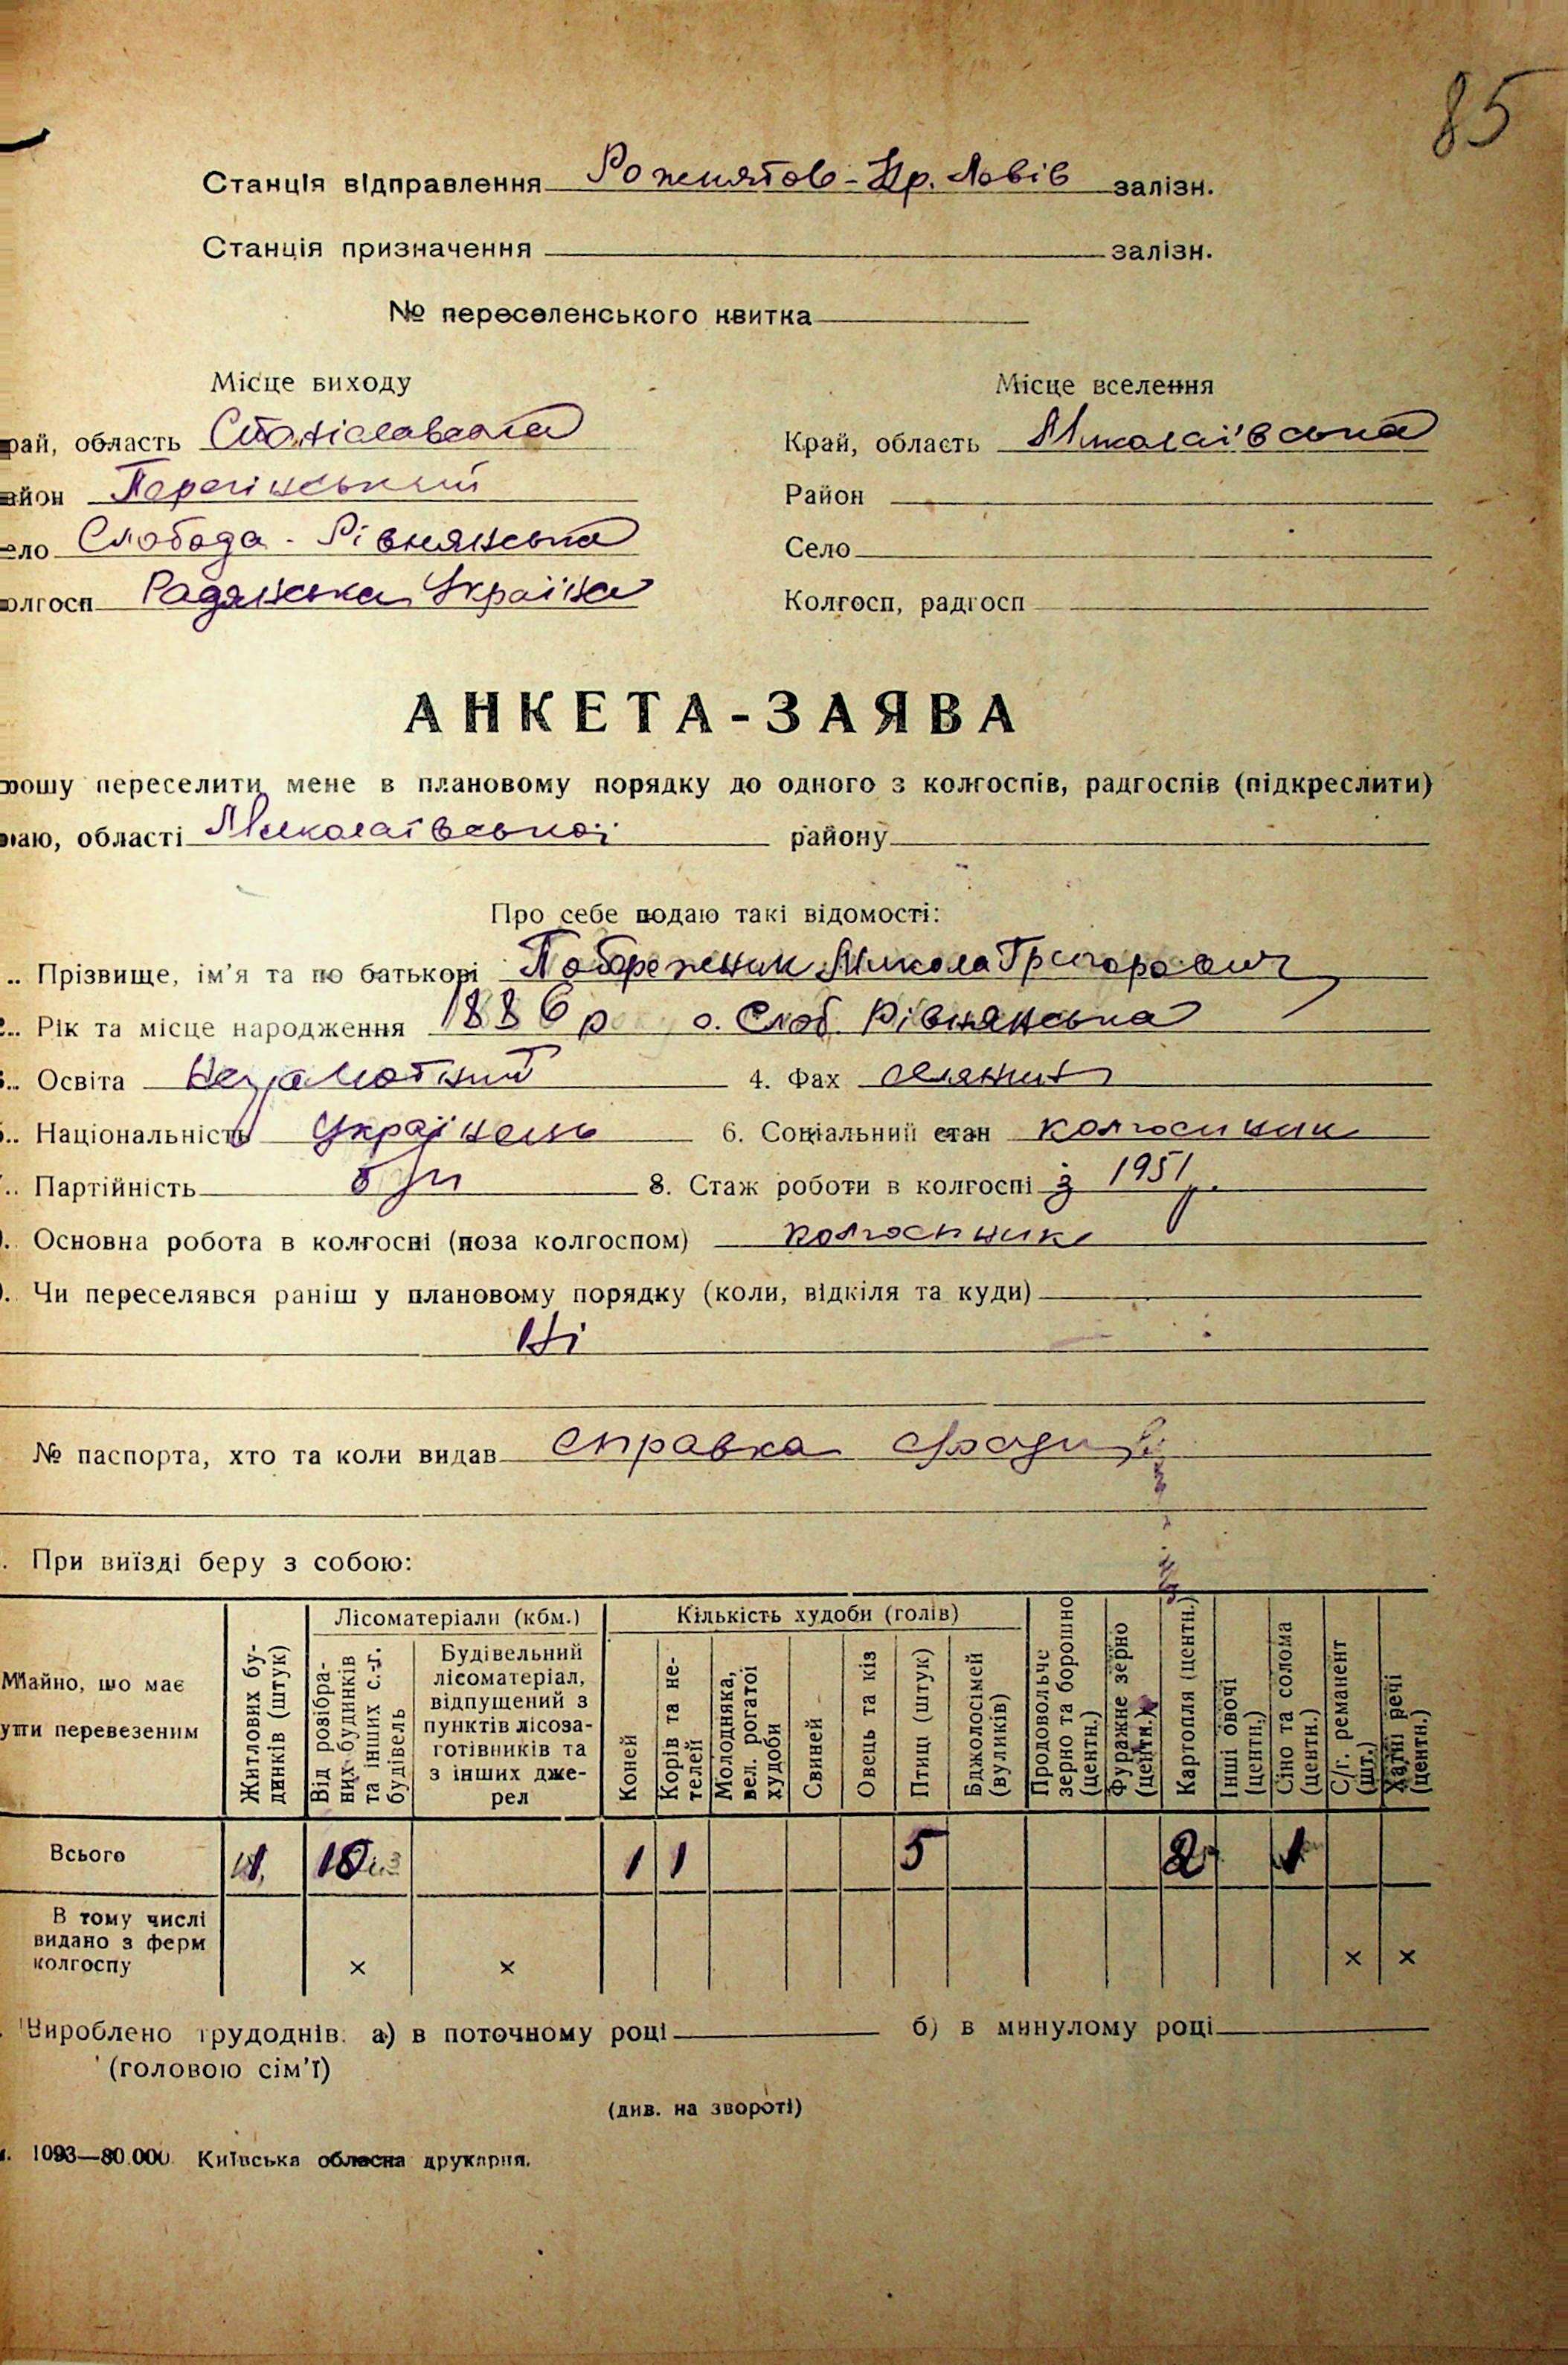 85
Станція відправлення Рожнятов-Кр. Львів залізн.
Станція призначення залізн.
№ переселенського квитка
Місце виходу Місце вселення
рай, область Станіславська Край, область Миколаївська
айон Перегінський Район
ело Слобода-Рівнянська Село
олгосп Радянська Україна Колгосп, радгосп
АНКЕТА-ЗАЯВА
рошу переселити мене в плановому порядку до одного з колгоспів, радгоспів (підкреслити)
раю, області Миколаївської району
Про себе подаю такі відомості:
.. Прізвище, ім'я та по батькові Побережник Микола Григорович
2.. Рік та місце народження 1886 р с. Слоб. Рівнянська
Освіта Неграмотний 4. Фах
Національність Українець 6. Соціальний стан колгоспник
Партійність б/п 8. Стаж роботи в колгоспі з 1951 р.
Основна робота в колгоспі (поза колгоспом) колгоспник
Чи переселявся раніш у плановому порядку (коли, відкіля та куди)
Ні
№ паспорта, хто та коли видав справка
. При виїзді беру з собою:
Майно, що має
ути перевезеним
Житлових будинків (штук)
Лісоматеріали (кбм.)
Від розібраних будинків та інших с.-г. будівель
Будівельний
лісоматеріал,
відпущений з
пунктів лісоза-
готівників та
з інших дже-
рел
Кількість худоби (голів)
Коней
Корів та не-
телей
Молодняка,
вел. рогатої
худоби
Свиней
Овець та кіз
Птиці (штук)
Бджолосімей
(вуликів)
Продовольче
зерно та борошно
(центн.)
Фуражне зерно
(центн.)
Картопля (центн.)
Інші овочі
(центн.)
Сіно та солома
(центн.)
С/г. реманент
(шт.)
Хатні речі
(центн.)
Всього 1 1 1 5 2 1
В тому числі
видано з ферм
колгоспу × × × ×
Вироблено трудоднів: а) в поточному році б) в минулому році
(головою сім'ї)
(див. на звороті)
1093—80.000. Київська обласна друкарня.